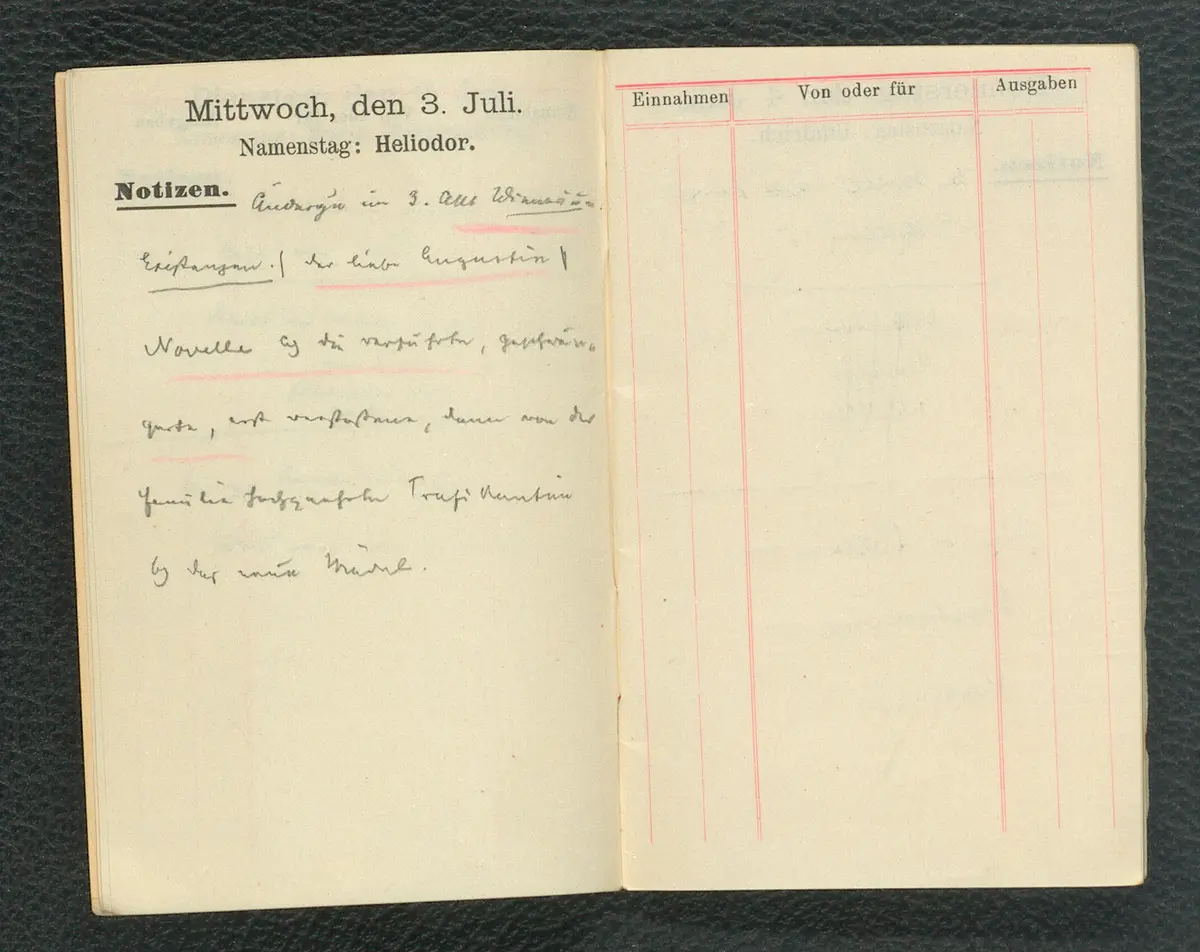 Mittwoch, den 3. Juli.
Namenstag: Heliodor.
Notizen. im 3. Akt
Existenzen. ( der liebe Augustin )
Novelle die verführte, geschwän-
gerte, erst verstoßene, dann von der
Familie hochgeehrte Trafikantin
Mädel.
Einnahmen Von oder für Ausgaben